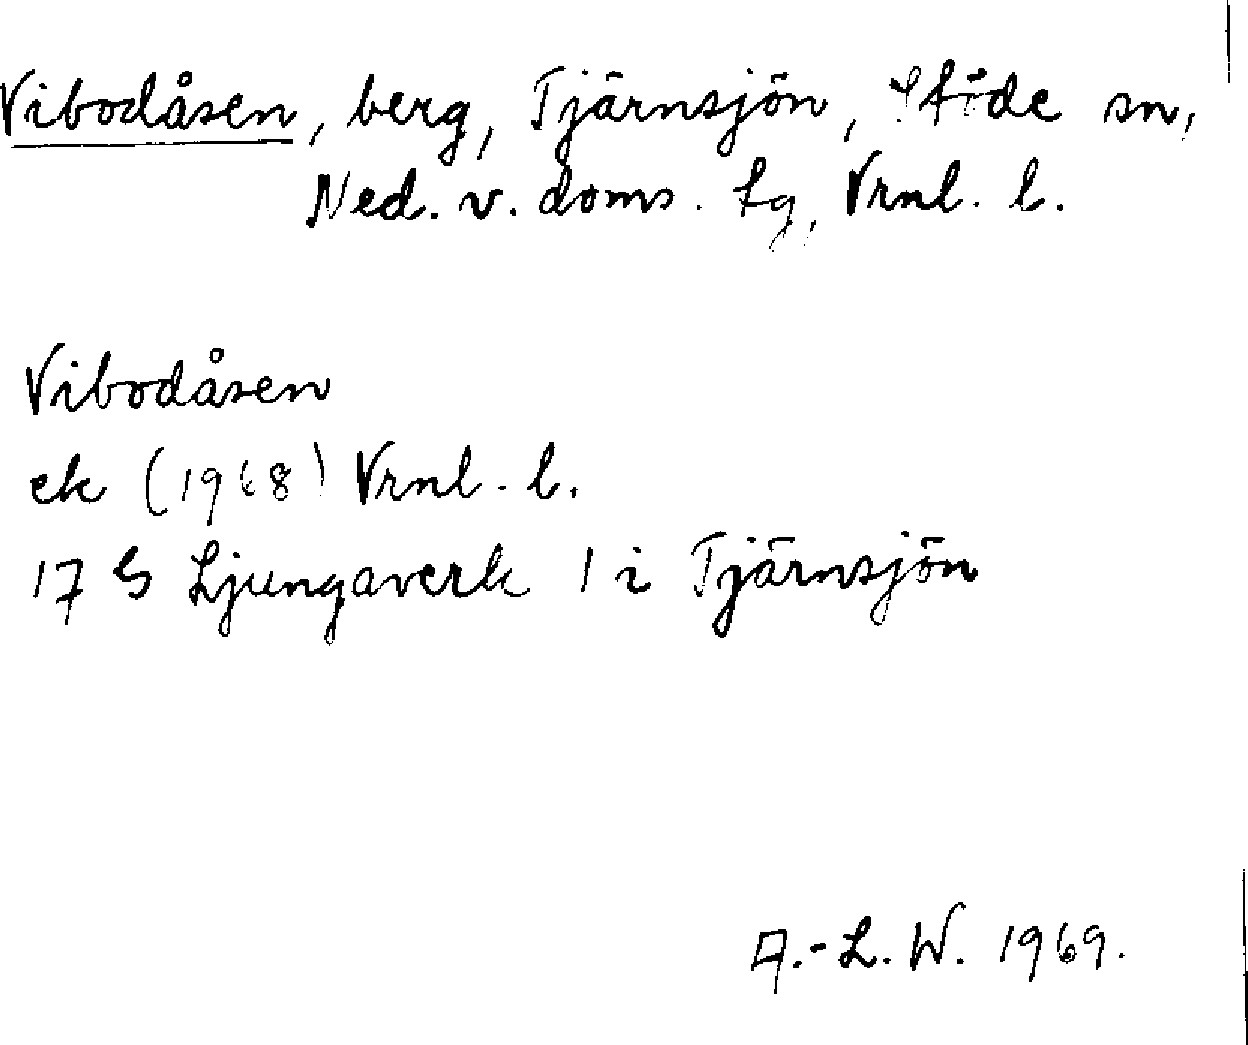 Vibodåsen, berg, Tjärnsjön, Stöde sn,
Ned. v. doms. tg, Vrnl. l.
Vibodåsen
ek (1968) Vrnl. l.
17 G Ljungaverk 1 i Tjärnsjön
A.-L. W. 1969.